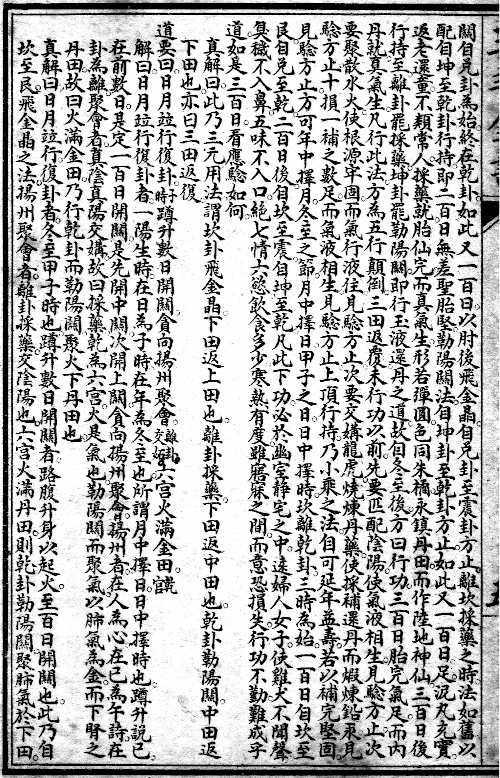 關自兌卦為始終在乾卦如此又一百日以肘後飛金晶自兌卦至震卦方止離坎採藥之時法如舊以
配自坤至乾卦行持即二百日無差聖胎堅勒陽關法自坤卦至乾卦方止如此又一百日足泥丸充實
返老還童不類常人採藥就胎仙完而真氣生形若彈圓色同朱橘永鎮丹田而作陸地神仙三百日後
行持至離卦罷採藥坤卦罷勒陽關即行玉液還丹之道故自冬至後方曰行功三百日胎完氣足而內
丹就真氣生凡行此法方為五行顛倒三田返覆未行功以前先要匹配陰陽使氣液相生見驗方止次
要聚散水火使根源牢固而氣行液住見驗方止次要交媾龍虎燒煉丹藥使採補還丹而煅煉鉛汞見
驗方止十損一補之數足而氣液相生見驗方止上項行持乃小乘之法自可延年益壽若以補完堅固
見驗方止方可年中擇月冬至之節月中擇日甲子之日日中擇時坎離乾卦三時為始一百日自坎至
艮自兌至乾二百日後自坎至震自坤至乾凡此下功必於幽室靜宅之中遠婦人女子使雞犬不聞聲
臭穢不入鼻五味不入口絕七情六慾飲食多少寒熱有度雖寤寐之間而意恐損失行功不勤難成乎
道如是三百日看應驗如何
真解曰此乃三元用法謂坎卦飛金晶下田返上田也離卦採藥下田返中田也乾卦勒陽關中田返
下田也亦曰三田返復
道要曰日月竝行復卦時子蹲升數日開關貪向揚州聚會離卦交媾六宮火滿金田乾
解曰日月竝行復卦者一陽生時在日為子時在年為冬至也所謂月中擇日日中擇時也蹲升說已
在前數日其定一百日開關是先開中關次開上關貪向揚州聚會揚州者在人為心在己為午詩在
卦為離聚會者真陰真陽交媾故曰採藥乾為六宮火是氣也勒陽關而聚氣以肺氣為金而下腎之
丹田故曰火滿金田乃行乾卦而勒陽關聚火下丹田也
真解曰日月竝行復卦者冬至甲子時也蹲升數日開關者路腹升身以起火至百日開關也此乃自
坎至艮飛金晶之法揚州聚會者離卦採藥交陰陽也六宮火滿丹田則乾卦勒陽關聚肺氣於下田